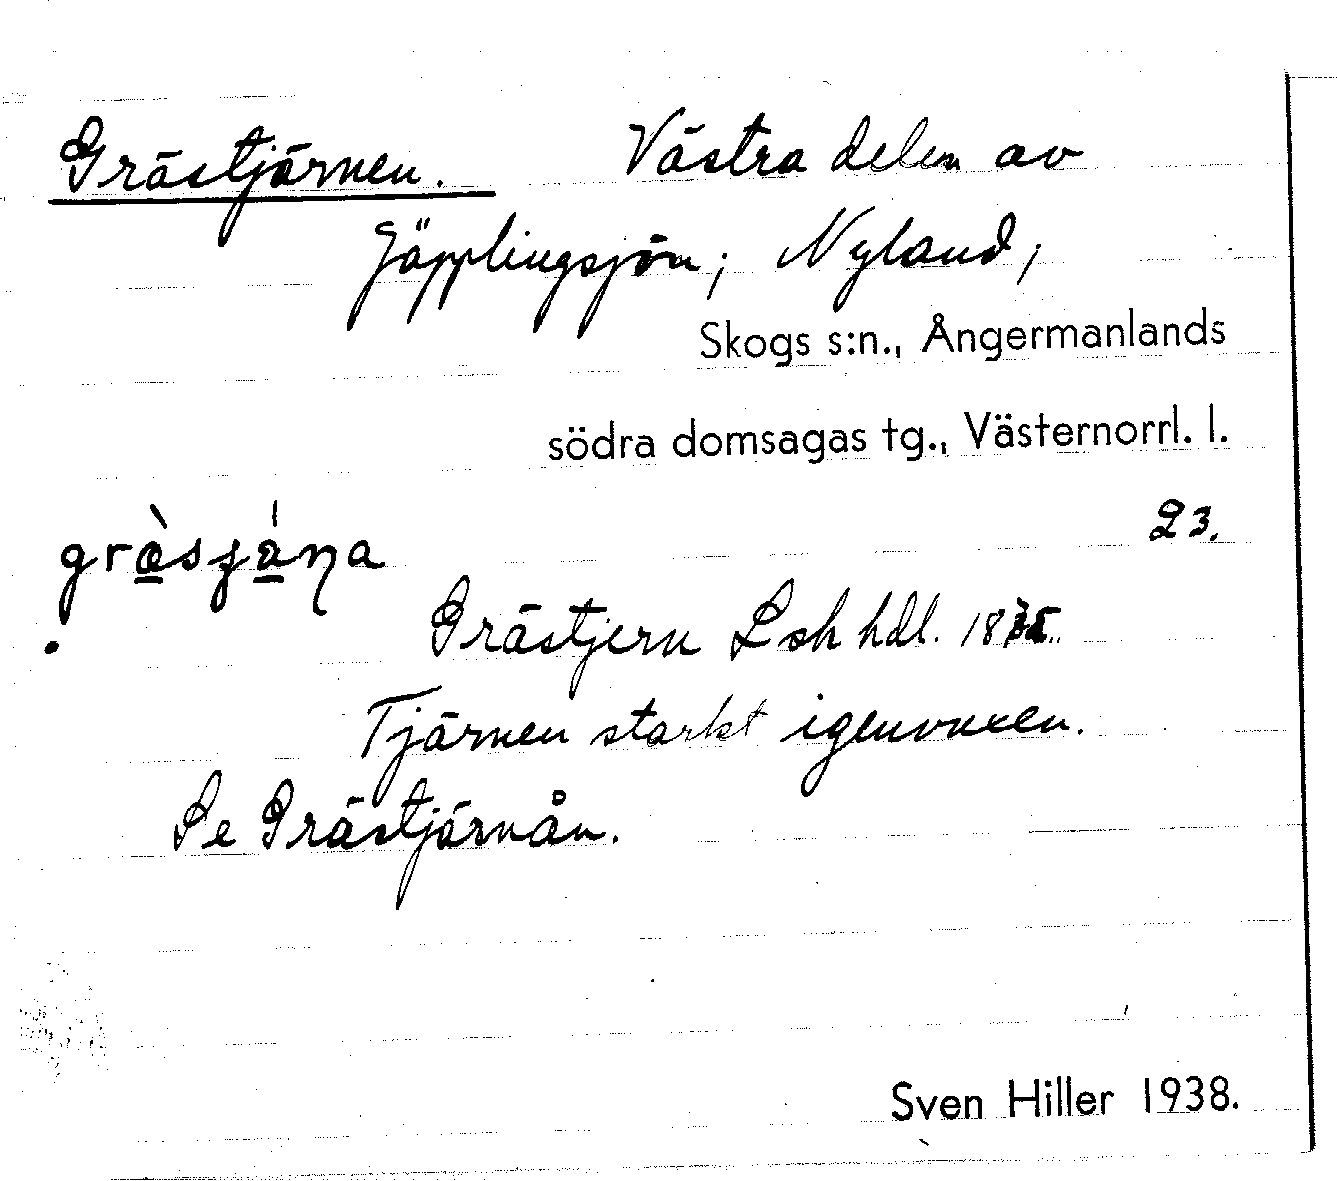 Grästjärnen. Västra delen av
Gäpplingsjön; Nyland,
Skogs s:n., Ångermanlands
södra domsagas tg., Västernorrl. l.
23.
Grästjern Lsh hdl.
Tjärnen starkt igenvuxen.
Se Grästjärnån.
Sven Hiller 1938.